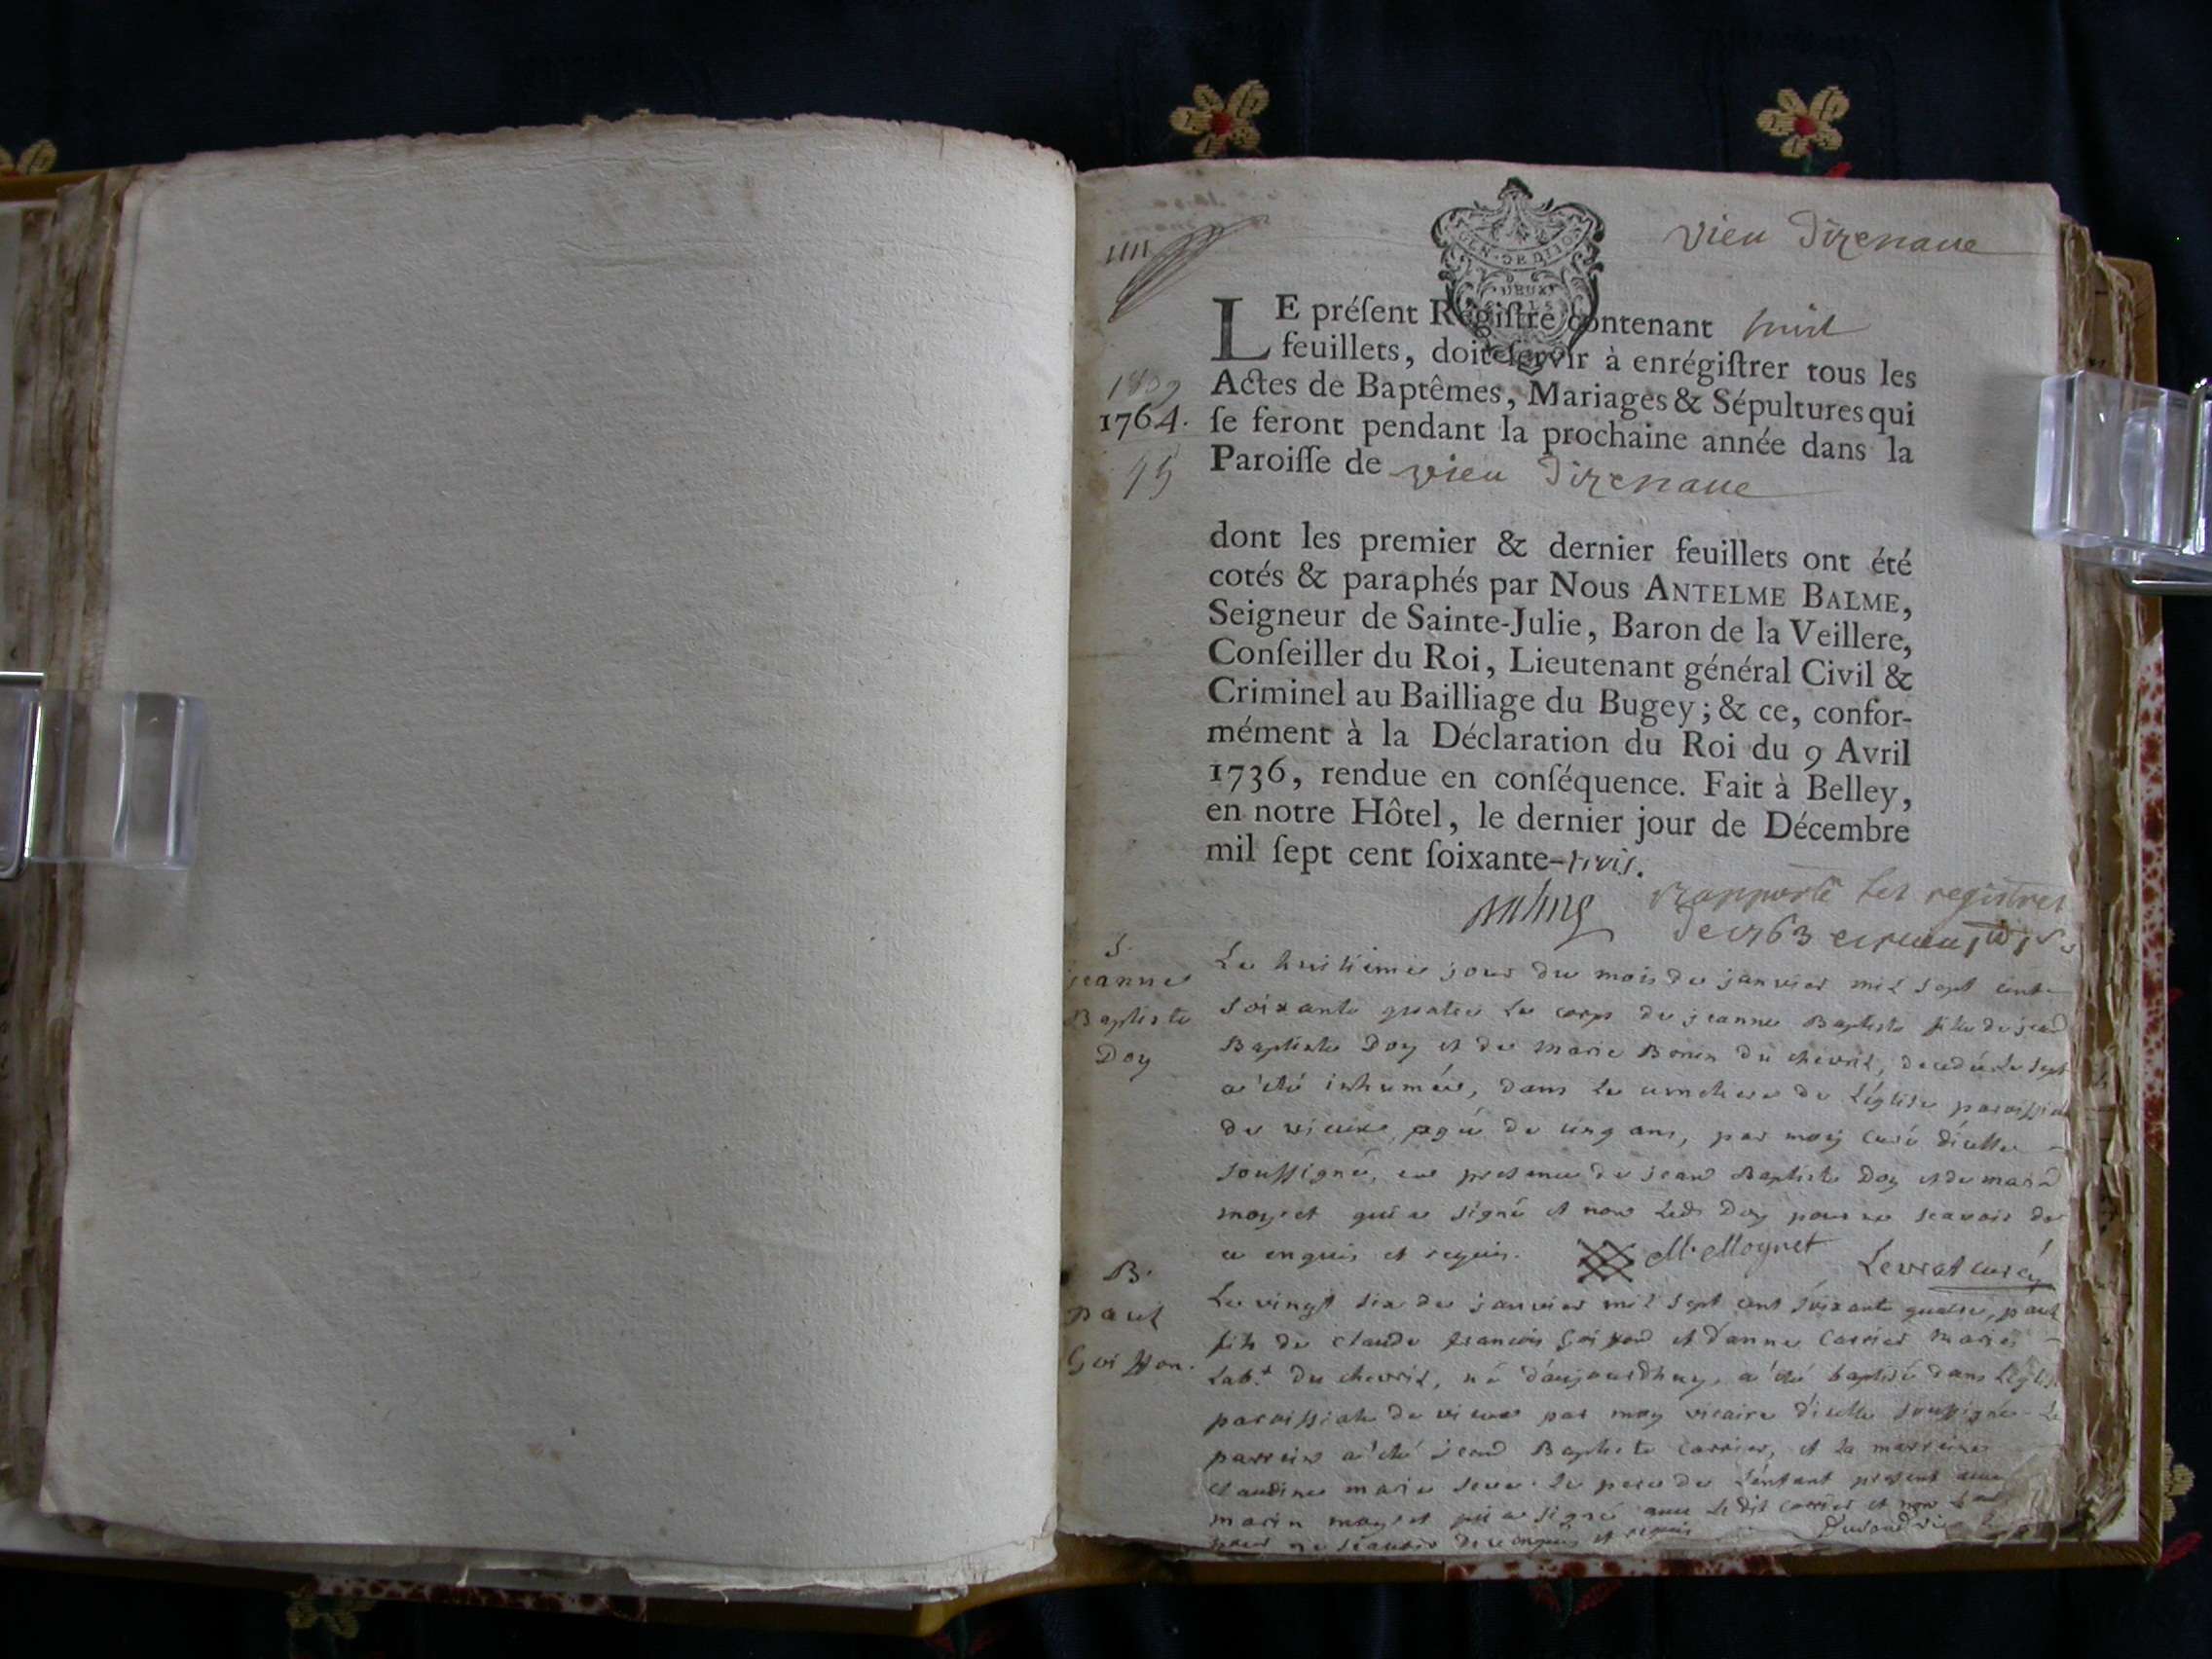 vieu Dizenaue
GEN · DE DIJON
DEUX
LE préſent Regiſtre contenant huit
feuillets, doit ſervir à enrégiſtrer tous les
Actes de Baptêmes, Mariages & Sépultures qui
1764. ſe feront pendant la prochaine année dans la
Paroiſſe de vieu Dizenaue
dont les premier & dernier feuillets ont été
cotés & paraphés par Nous ANTELME BALME,
Seigneur de Sainte-Julie, Baron de la Veillere,
Conſeiller du Roi, Lieutenant général Civil &
Criminel au Bailliage du Bugey; & ce, confor-
mément à la Déclaration du Roi du 9 Avril
1736, rendue en conſéquence. Fait à Belley,
en notre Hôtel, le dernier jour de Décembre
mil ſept cent ſoixante-trois.
Balme rapporté les registres
de 1763
S.
jeanne
Baptiste
Doy
Le huitieme jour du mois de janvier mil sept cent
soixante quatre le corps de jeanne Baptiste fille de jean
Baptiste Doy et de Marie Bonin du chevril, decedée le sept
a été inhumée, dans le cimetiere de L'église paroissiale
de vieux, agée de cinq ans, par moy curé d'icelle
soussigné, en presence de jean Baptiste Doy et de marin
moynet qui a signé et non ledt Doy pour ne scavoir de
ce enquis et requis. M. Moynet Levrat curé
B.
paul
Goiffon.
Le vingt six de janvier mil sept cent soixante quatre, paul
fils de claude francois Goiffon et d'anne Carrier mariés
Lab.r du chevril, né d'aujourdhuy, a été baptisé dans L'église
paroissiale de vieux par moy vicaire d'icelle soussigné Le
parrein a été jean Baptiste Carrier, et la marreine
claudine marie Le pere de L'enfant present avec
marin moynet qui a signé avec Le dit Carrier et non
pour ne scavoir de ce enquis et requis